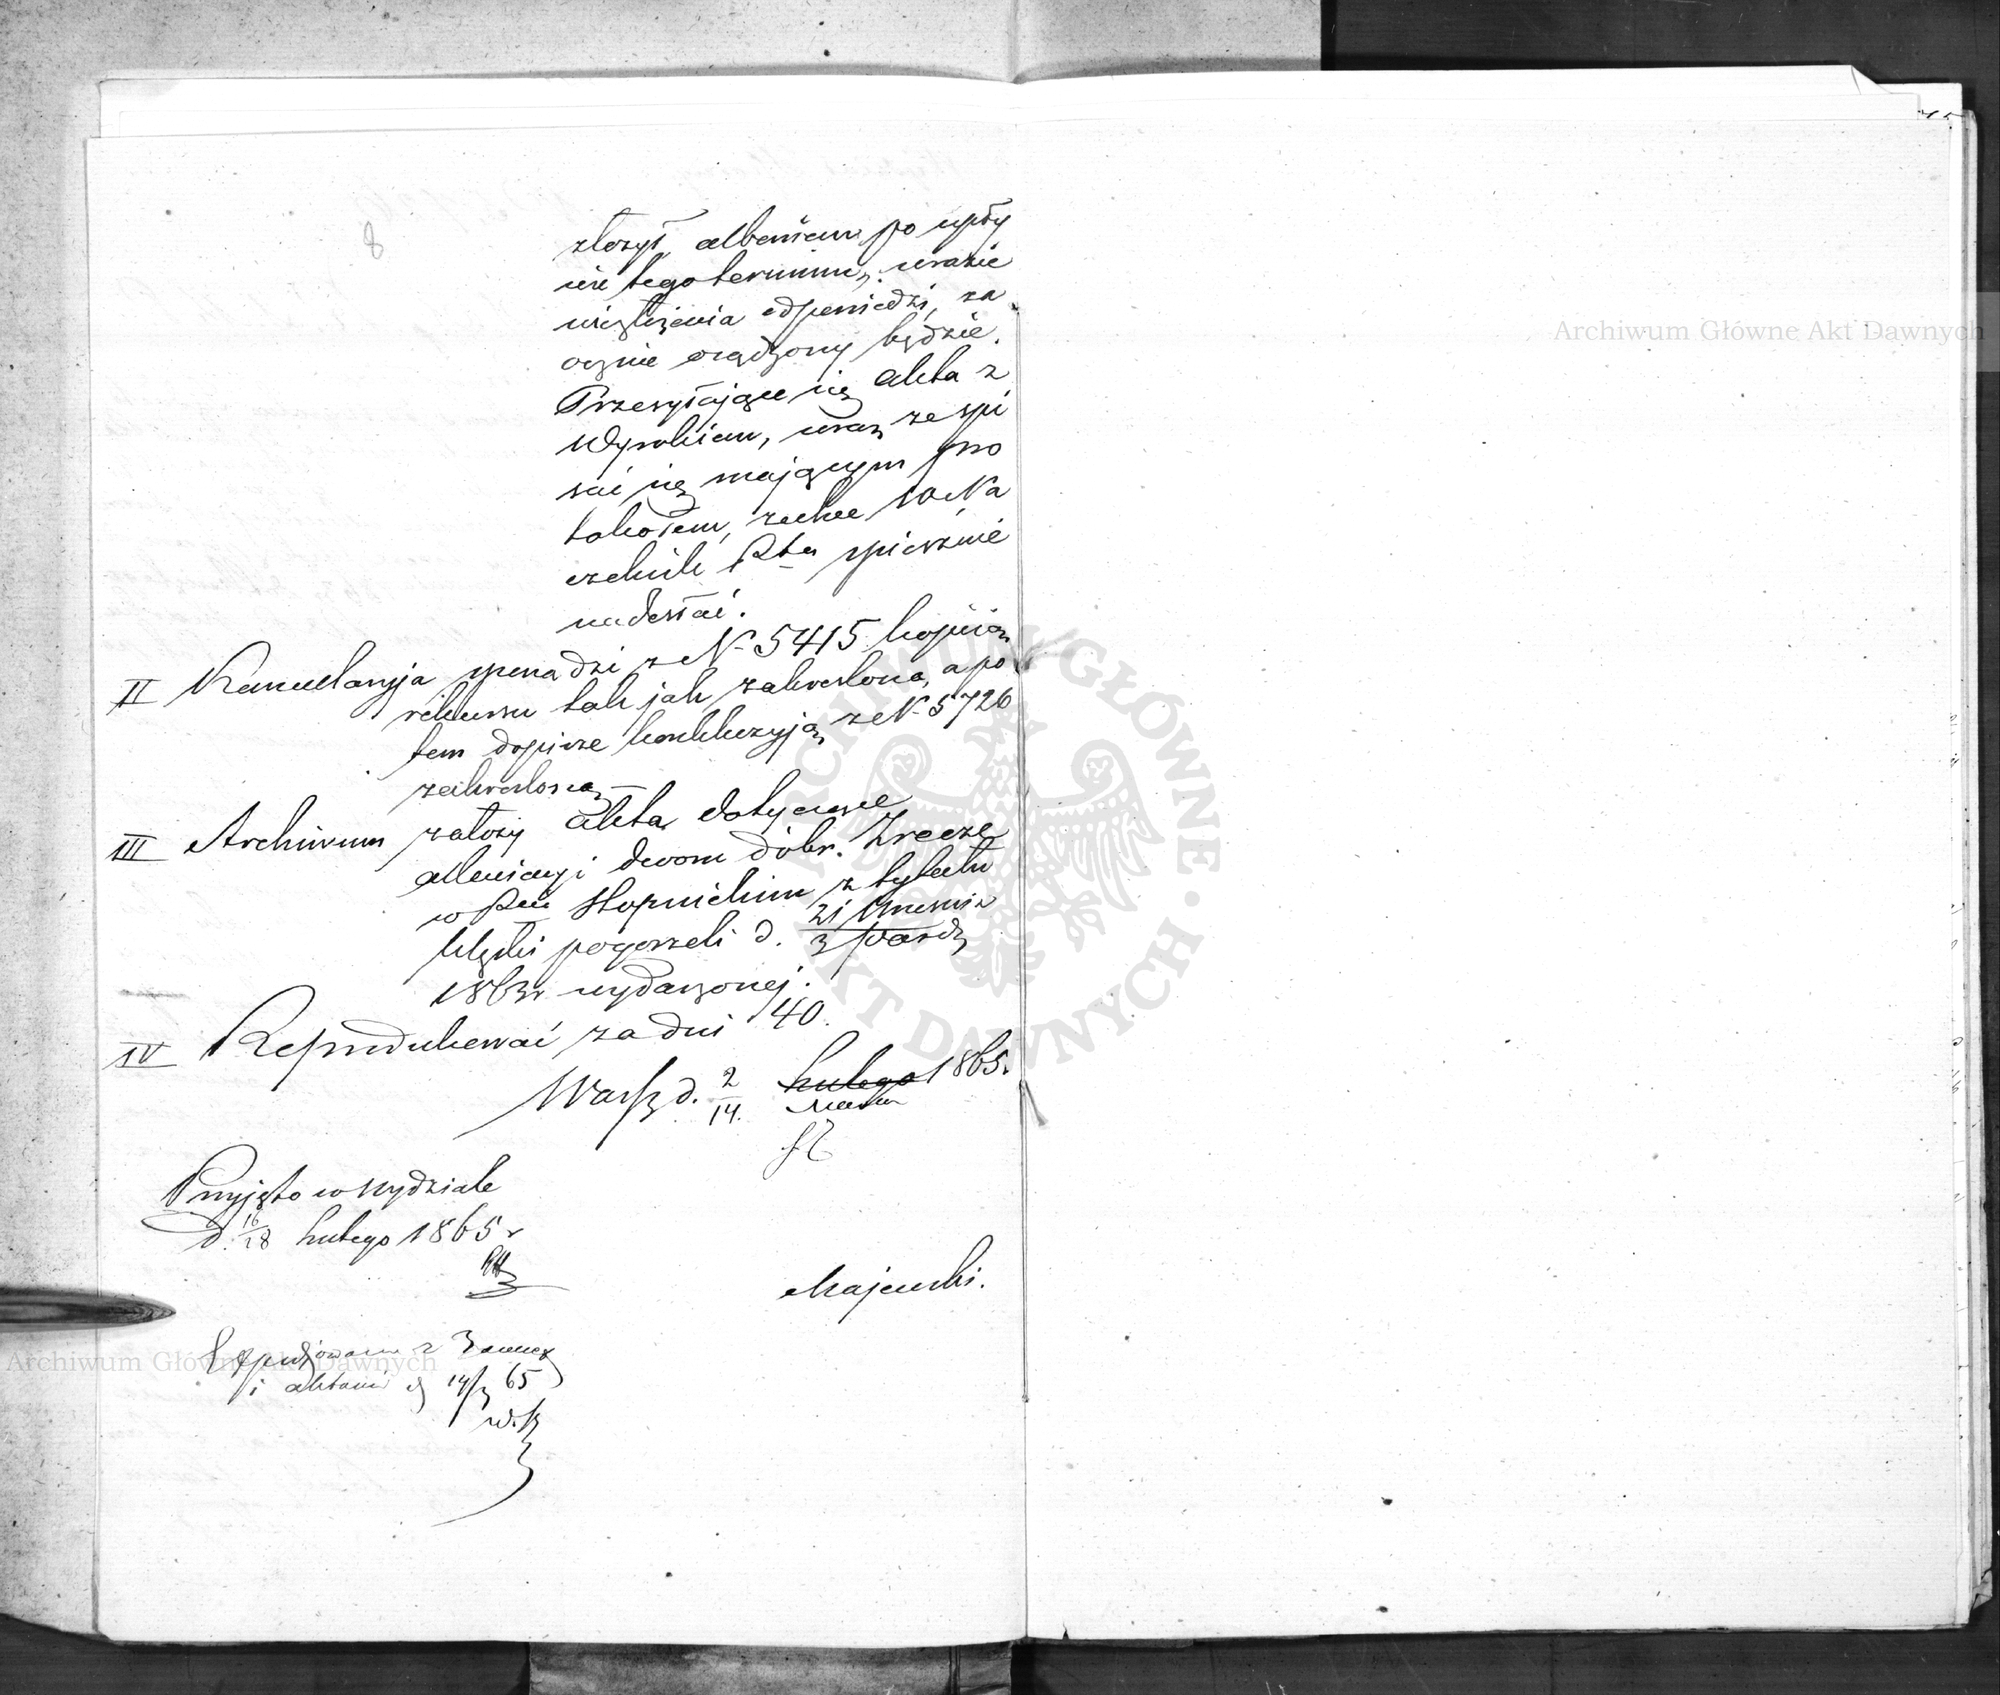 8
złożył, albowiem po upły
wie tego terminu, w razie
niezłożenia odpowiedzi, za
ocznie osądzony będzie.
Przesyłające się akta z
Wyrokiem, wraz ze spi
sać się mającym pro
tokołem, zechce W Na
czelnik Ptu spiesznie
nadesłać.
II Kancelaryja sprowadzi ze N. 5415 kopiją
rekursu tak jak zakreślona, a po
tem dopisze konkluzyją ze N. 5726
zakreśloną
III Archiwum założy akta dotyczące
allewiacyi dworu dóbr. Zrecze
w Pcie Stopnickim z tytułu
klęski pogorzeli d. 21 Kwietnia / 3 Maja
1863r wydarzonej.
IV Reprodukować za dni 40.
Warsz d. 2/14. Lutego 1865r
Marca
Przyjęto w Wydziale
d. 16/28 Lutego 1865 r
Majewski.
Expedjowano z
i aktami d 14/3 65
Archiwum Główne Akt Dawnych
Archiwum Główne Akt Dawnych
ARCHIWUM GŁÓWNE AKT DAWNYCH